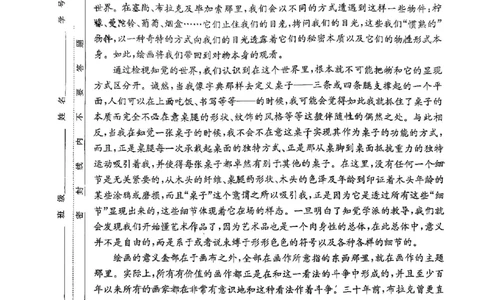 世界。在塞尚、布拉克及毕加索那里,我们会以不同的方式遭遇到这样一些物件:柠
檬、曼陀铃、葡萄、烟盒……它们止住我们的目光,转问我们的目光,这些我们“惯熟的”
物件,以一种奇特的方式向我们的目光透露着它们的秘密本质以及它们的物性形式本
身。如此,绘画将我们带回到对物本身的观看。
通过检视知觉的世界,我们认识到在这个世界里,根本就不可能把物和它的显现
方式区分开。诚然,当我像字典那样去定义桌子——三条或四条腿支撑起的一个平
面,人们可以在上面吃饭、书写等等——的时候,我可能会觉得如此我就抓住了桌子的
本质而完全不必在意桌腿的形状、纹饰的风格等等这般伴随性的偶然之处。与此相
反,当我在知觉一张桌子的时候,我不会不在意这桌子实现其作为桌子的功能的方式,
而且,正是桌腿每一次承载起桌面的独特方式、正是那从桌脚到桌面抵抗重力的独特
运动吸引着我,并使得每张桌子都卓然有别于其他的桌子。在这里,没有任何一个细
节是无关紧要的,从木头的纤维、桌腿的形状、木头的色泽及年龄到印证着木头年龄的
某些涂鸦或磨损,而且“桌子”这个意谓之所以吸引我,正是因为它是透过所有这些“细
节”显现出来的,这些细节体现着它在场的样态。一旦明白了知觉学派的教导,我们就
会发现我们开始懂艺术作品了,因为艺术作品也是一个肉身性的总体,在此总体中,意义
并不是自由的,而是系于或者说束缚于形形色色的符号以及各种各样的细节的。
绘画的意义全部在于画布之外,全部在画作所意指的东西那里,就在画作的主题
那里。实际上,所有有价值的画作都正是在和这一看法的斗争中形成的,并且至少百
年以来所有的画家都在非常有意识地和这种看法作着斗争。三十年前,布拉克曾更直
学号
姓名
班级
密封线内不要答题